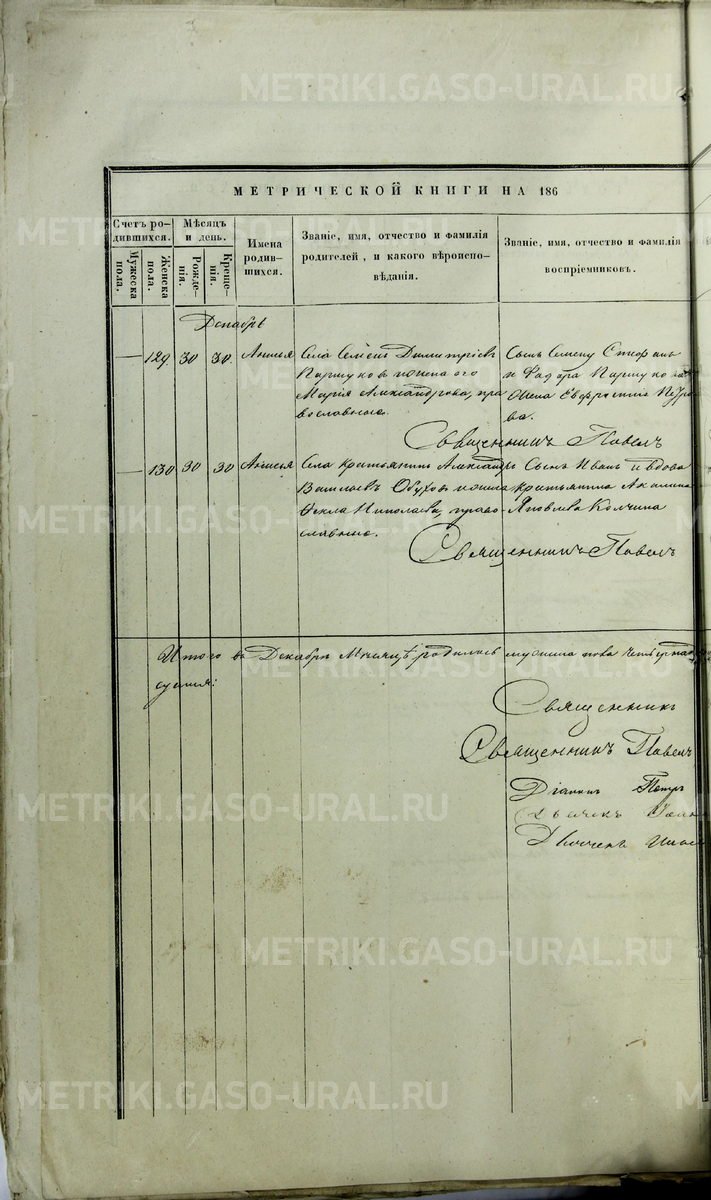 МЕТРИЧЕСКОЙ КНИГИ НА 186
Счетъ ро-
дившихся.
Мѣсяцъ
и день.
Мужеска
пола.
Женска
пола.
Рожде-
нія.
Креще-
нія.
Имена
родив-
шихся.
Званіе, имя, отчество и фамилія
родителей, и какого вѣроиспо-
вѣданія.
Званіе, имя, отчество и фамилія
воспріемниковъ.
Декабрь
— 129 30 30. Анисья
Села Семенъ Димитріевъ
Паршуковъ и жена его
Марія Александрова, пра
вославные.
Сынъ Семену Стефанъ
и Федора Паршукова
жена Евфросинія Петро
ва.
Священникъ Павелъ
— 130 30 30 Анисья
Села крестьянинъ Александръ
Васильевъ Обуховъ и жена
Фекла Николаева, право-
славные.
Сынъ Иванъ и вдова
крестьянина Акилина
Яковлева Колчина
Священникъ Павелъ
Итого въ Декабрѣ Мѣсяцѣ родилось мужеска пола
Священникъ
Священникъ Павелъ
Діаконъ Петръ
Дьячекъ
METRIKI.GASO-URAL.RU
METRIKI.GASO-URAL.RU
METRIKI.GASO-URAL.RU
METRIKI.GASO-URAL.RU
METRIKI.GASO-URAL.RU
METRIKI.GASO-URAL.RU
METRIKI.GASO-URAL.RU
METRIKI.GASO-URAL.RU